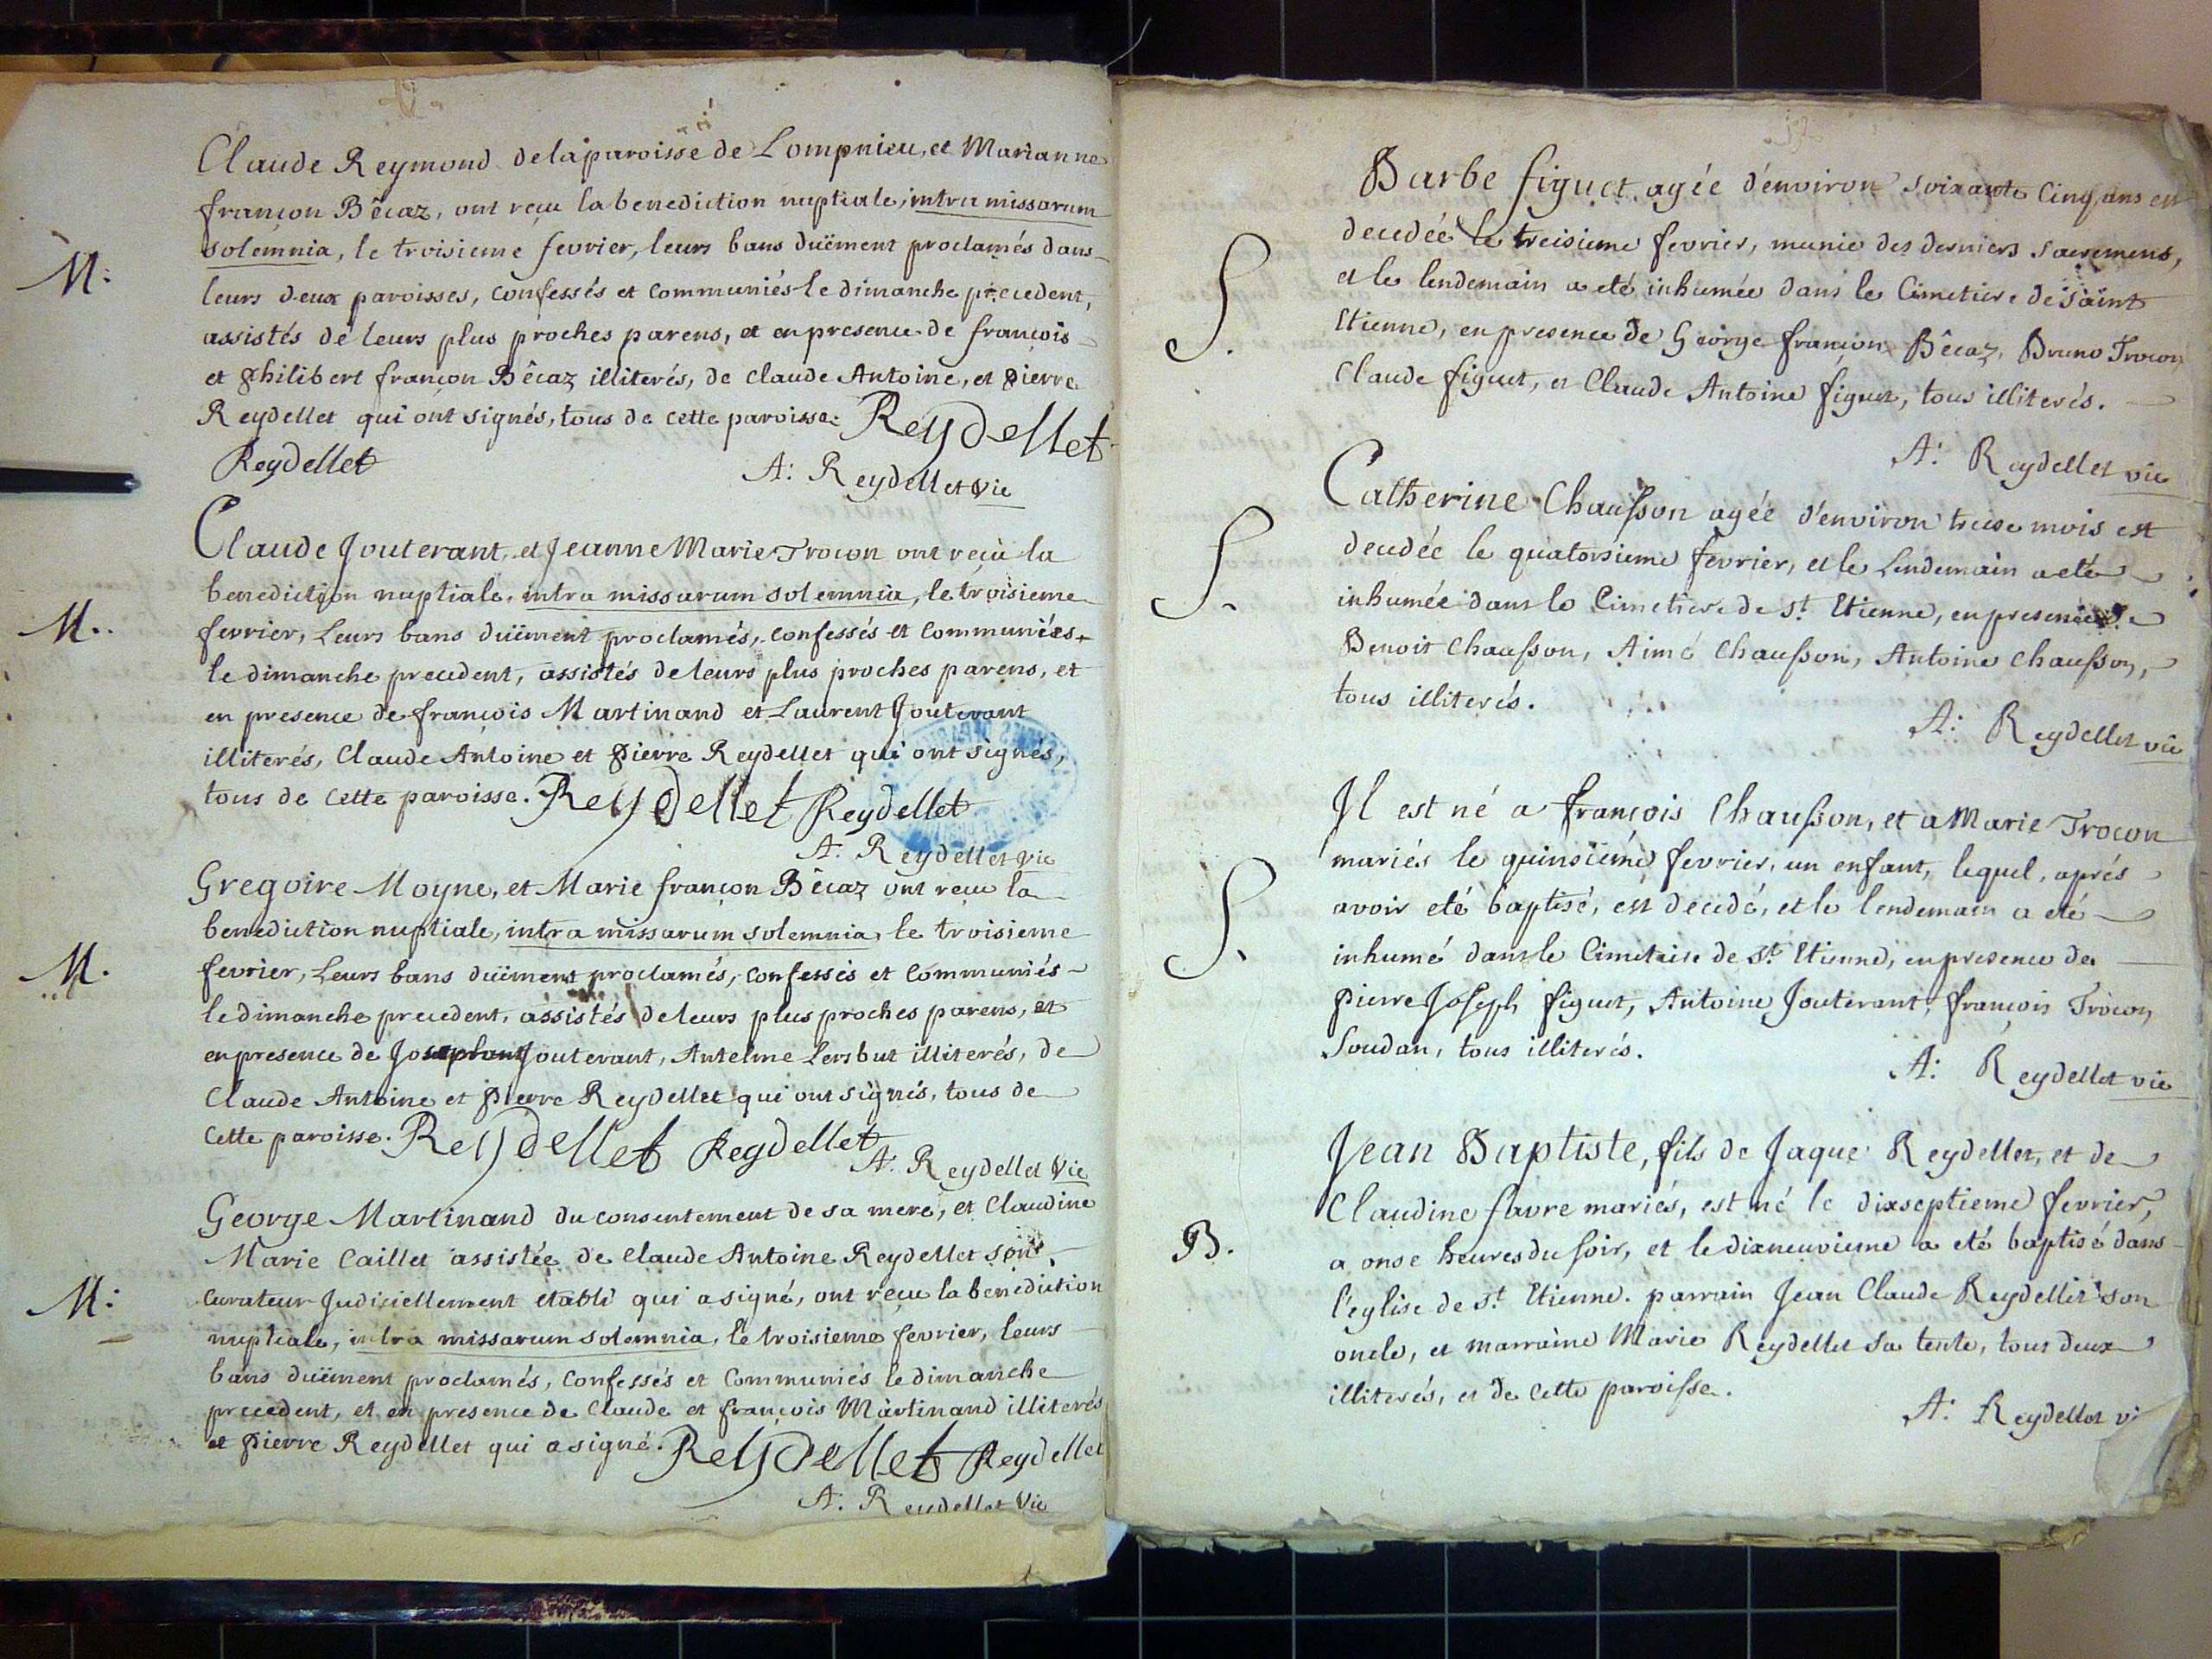 Claude Reymond de la paroisse de Lompnieu, et Marianne
françon Bêcaz, ont reçu la benediction nuptiale, intra missarum
M: solemnia, le troisieme fevrier, leurs bans duëment proclamés dans
leurs deux paroisses, confessés et communiés le dimanche precedent,
assistés de leurs plus proches parens, et en presence de françois
et philibert françon Bêcaz illiterés, de claude Antoine, et pierre
Reydellet qui ont signés, tous de cette paroisse. Reydellet
Reydellet A: Reydellet vic
Claude Jouterant, et Jeanne Marie Trocon ont reçu la
benediction nuptiale, intra missarum solemnia, le troisieme
M.. fevrier, Leurs bans duëment proclamés, confessés et communiées
le dimanche precedent, assistés de leurs plus proches parens, et
en presence de françois Martinand et Laurent Jouterant
illiterés, Claude Antoine et pierre Reydellet qui ont signés,
tous de cette paroisse. Reydellet Reydellet
A. Reydellet vic
Gregoire Moyne, et Marie françon Bêcaz ont reçu la
benediction nuptiale, intra missarum solemnia, le troisieme
M. fevrier, Leurs bans duëment proclamés, confessés et communiés
le dimanche precedent, assistés de leurs plus proches parens, et
en presence de Jouterant, Antelme Lersbut illiterés, de
Claude Antoine et pierre Reydellet qui ont signés, tous de
cette paroisse. Reydellet Reydellet
A. Reydellet vic
George Martinand du consentement de sa mere, et Claudine
Marie Caillet assistée de Claude Antoine Reydellet son
M: curateur Judiciellement etabli qui a signé, ont reçu la benediction
nuptiale, intra missarum solemnia, le troisieme fevrier, leurs
bans duëment proclamés, confessés et communiés le dimanche
precedent, et en presence de Claude et françois Martinand illiterés
et pierre Reydellet qui a signé. Reydellet Reydellet
A. Reydellet vic
Barbe figuet agée d'environ soixante cinq ans est
decedée le treisieme fevrier, munie des derniers sacremens,
S. et le lendemain a eté inhumée dans le Cimetiere de saint
Etienne, en presence de George françon Bêcaz, Bruno Trocon
Claude figuet, et Claude Antoine figuet, tous illiterés.
A: Reydellet vic
Catherine Chausson agée d'environ treise mois est
decedée le quatorsieme fevrier, et le Lendemain a eté
S. inhumée dans le Cimetiere de st. Etienne, en presence de
Benoit Chausson, Aimé Chausson, Antoine Chausson,
tous illiterés.
A: Reydellet vic
Il est né a françois Chausson, et a Marie Trocon
mariés le quinsieme fevrier, un enfant, lequel, aprés
avoir eté baptisé, est decedé, et le lendemain a eté
S. inhumé dans le Cimetiere de st. Etienne, en presence de
pierre Joseph figuet, Antoine Jouterant, françois Trocon
Soudan, tous illiterés.
A: Reydellet vic
Jean Baptiste, fils de Jaque Reydellet, et de
Claudine favre mariés, est né le dixseptieme fevrier,
B. a onse heures du soir, et le dixneuvieme a eté baptisé dans
l'eglise de st. Etienne. parrain Jean Claude Reydellet son
oncle, et marraine Marie Reydellet sa tente, tous deux
illiterés, et de cette paroisse.
A: Reydellet vi